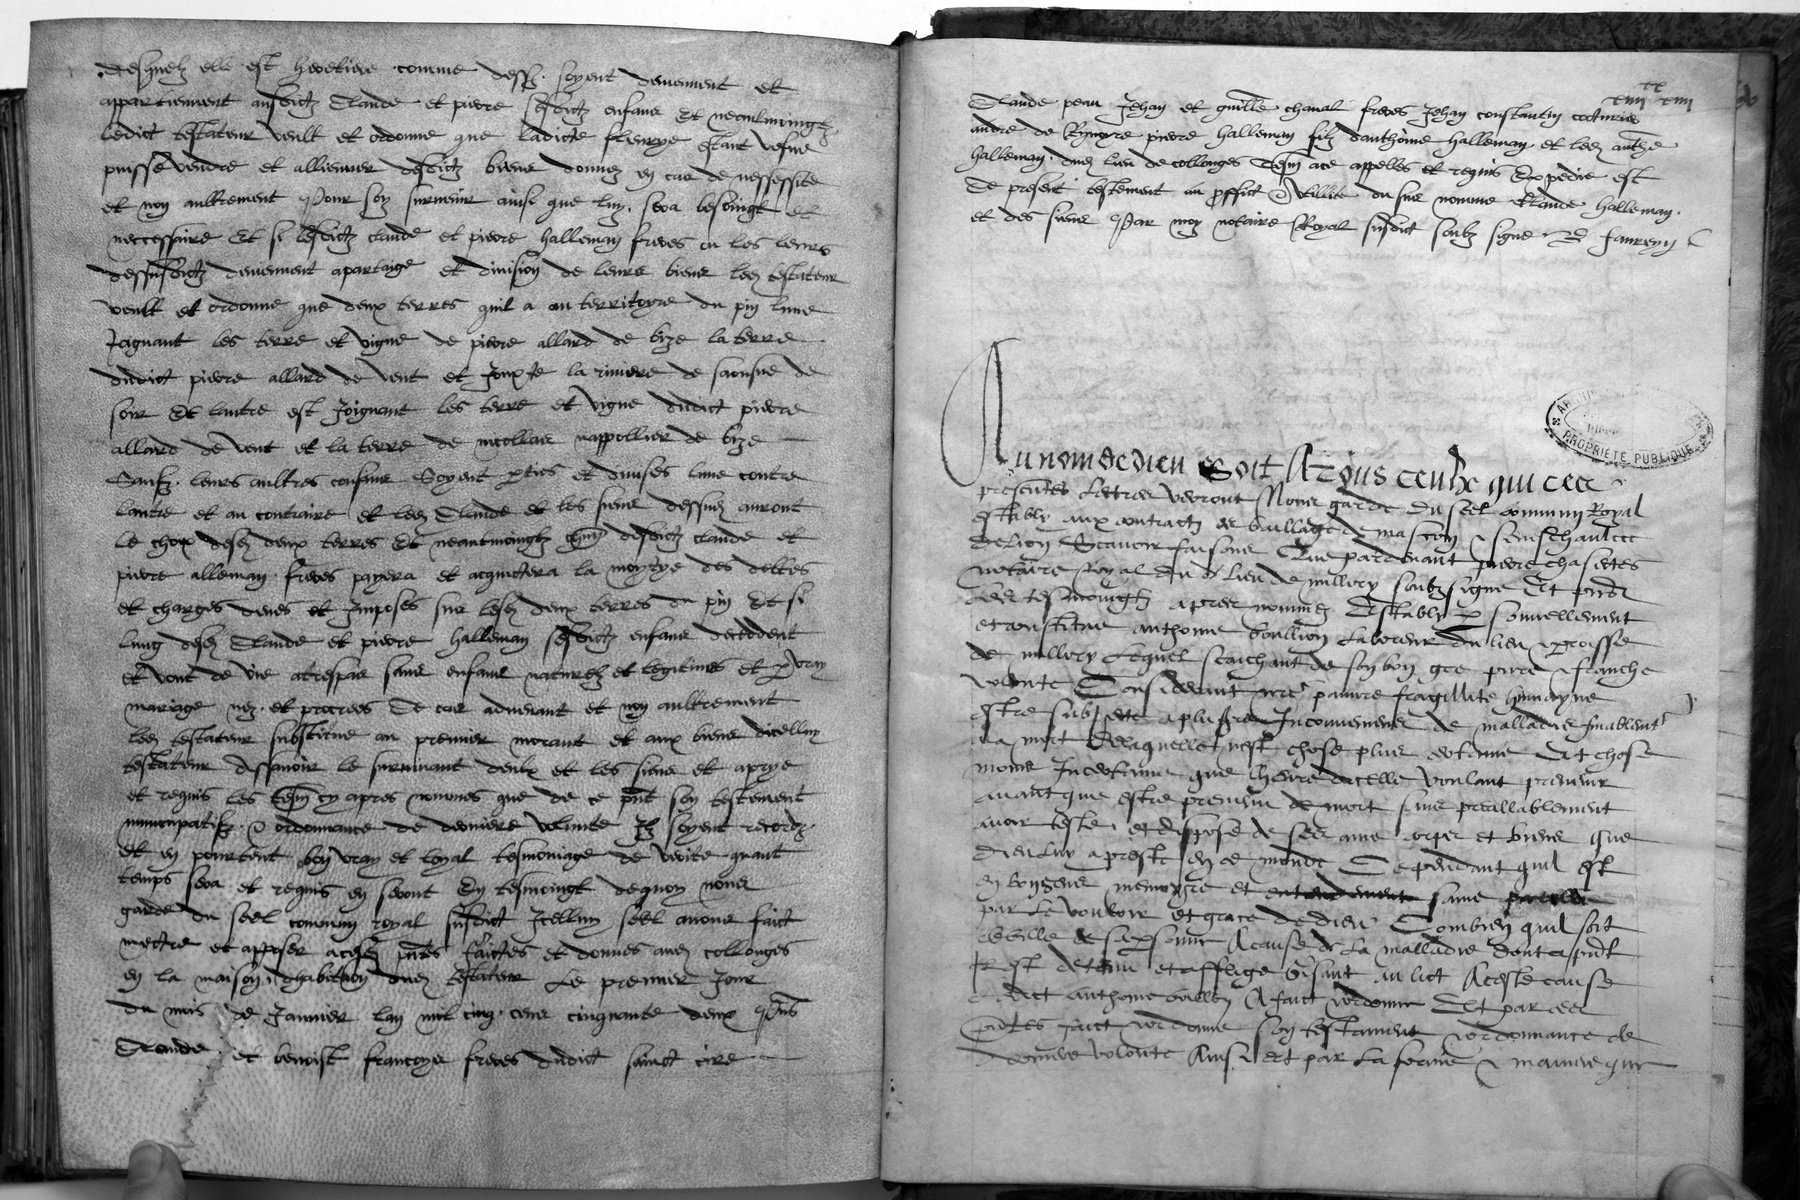 desquelz elle est heretiere comme dessus soyent deuement et
appartiennent ausdictz Claude et pierre sesdictz enfans Et neantmoingtz
ledict testateur veult et ordonne que ladicte fleurye estant vefve
puisse vendre et alliener desdictz biens donnez en cas de nessessite
et non aultrement Pour soy survenir ainsi que luy sera besoingt et
neccessaire Et si lesdictz claude et pierre halleman freres ou les leurs
dessusdictz viennent a partaige et division de leurs biens ledict testateur
veult et ordonne que deux terres quil a au territoyre du pin lune
Joignant les terre et vigne de pierre allard de bize la terre
dudict pierre allard de vent et Jouxte la riviere de saonsne de
soir Et lautre est Joignant les terre et vigne dudict pierre
allard de vent et la terre de nicollas nappollier de bize
Soyent parties et divises lune contre
lautre et au contraire et ledict Claude et les siens dessusdictz auront
le choix desdictz deux terres Et neantmoingtz desdictz claude et
pierre alleman freres payera et acquictera la moytye des debtes
et charges deues et Imposes sur lesdictz deux terres du pin Et si
lung desdictz Claude et pierre halleman sesdictz enfans decedent
et vont de vie a trespas sans enfans naturelz et legitimes et par vray
mariage nez et procrees Le cas advenant et non aultrement
ledict testateur substitue au premier morant et aux biens dicelluy
testateur assavoir le survivant deulx et les siens et a prye
et requis les tesmoingtz cy apres nommes que de ce present son testement
nuncupatifz & ordonnance de derniere volunte Ilz soyent recordz
et en pourtent bon vray et loyal tesmoniage de verite quant
temps sera et requis en seront En tesmoingt dequoy nous
garde du seel commun royal susdict Icelluy seel avons faict
mectre et apposer a cesdictes presentes faictes et donnes audict collonges
en la maison dhabitation dudict testateur Le premier Jour
du mois de Janvier lan mil cinq cens cinquante deux Presens
Claude et benoist francoys freres dudict sainct cire
Claude peau Jehan et guille chanal freres Johan constantin cousturier
andre de Rymoyre pierre halleman filz danthoine halleman et ledict anthoine
halleman dudict lieu de collonges tesmoingtz a ce appelles et requis Expedie est
le present testement au proffict & utillite du sus nomme Claude halleman
et des siens Par moy notaire Royal susdict soubz signe
Au nom de dieu Soit A Tous ceulx qui ces
presentes Lettres verront Nous garde du seel commun Royal
estably aux contractz es bailliage de mascon & seneschaulcee
de Lion Scavoir faisons Que pardevant pierre chasietes
notaire Royal du dict Lieu de millery soubzsigne Et presens
Les tesmoingtz apres nommez Estably personnellement
et constitue anthoine boullion Laboreur du lieu & parroisse
de millery Lequel scaichant de son bon gre pure & franche
volunte Considerant nostre pauvre fragillite humayne
estre subjecte a plusieurs Inconveniens de malladies finablement
a la mort de laquelle nest chose plus certaine Et chose
moins Incertaine que lheure dicelle voulant prevenir
avant que estre prevenu de mort sans preallablement
avoir teste et dispose de ses ame corps et biens que
dieu luy a preste en ce monde Cependant quil est
en bon sens memoyre et entendement sans
par Le vouloir et grace de dieu Combien quil soit
debille de sa personne A cause de La malladie dont a present
Il est detenu et afflige Gisant au lict A ceste cause
Ledict anthoine A faict & ordonne Et par ces
presentes faict & ordonne son testament & ordonnance de
derniere volonte Ainsi et par La forme & maniere que